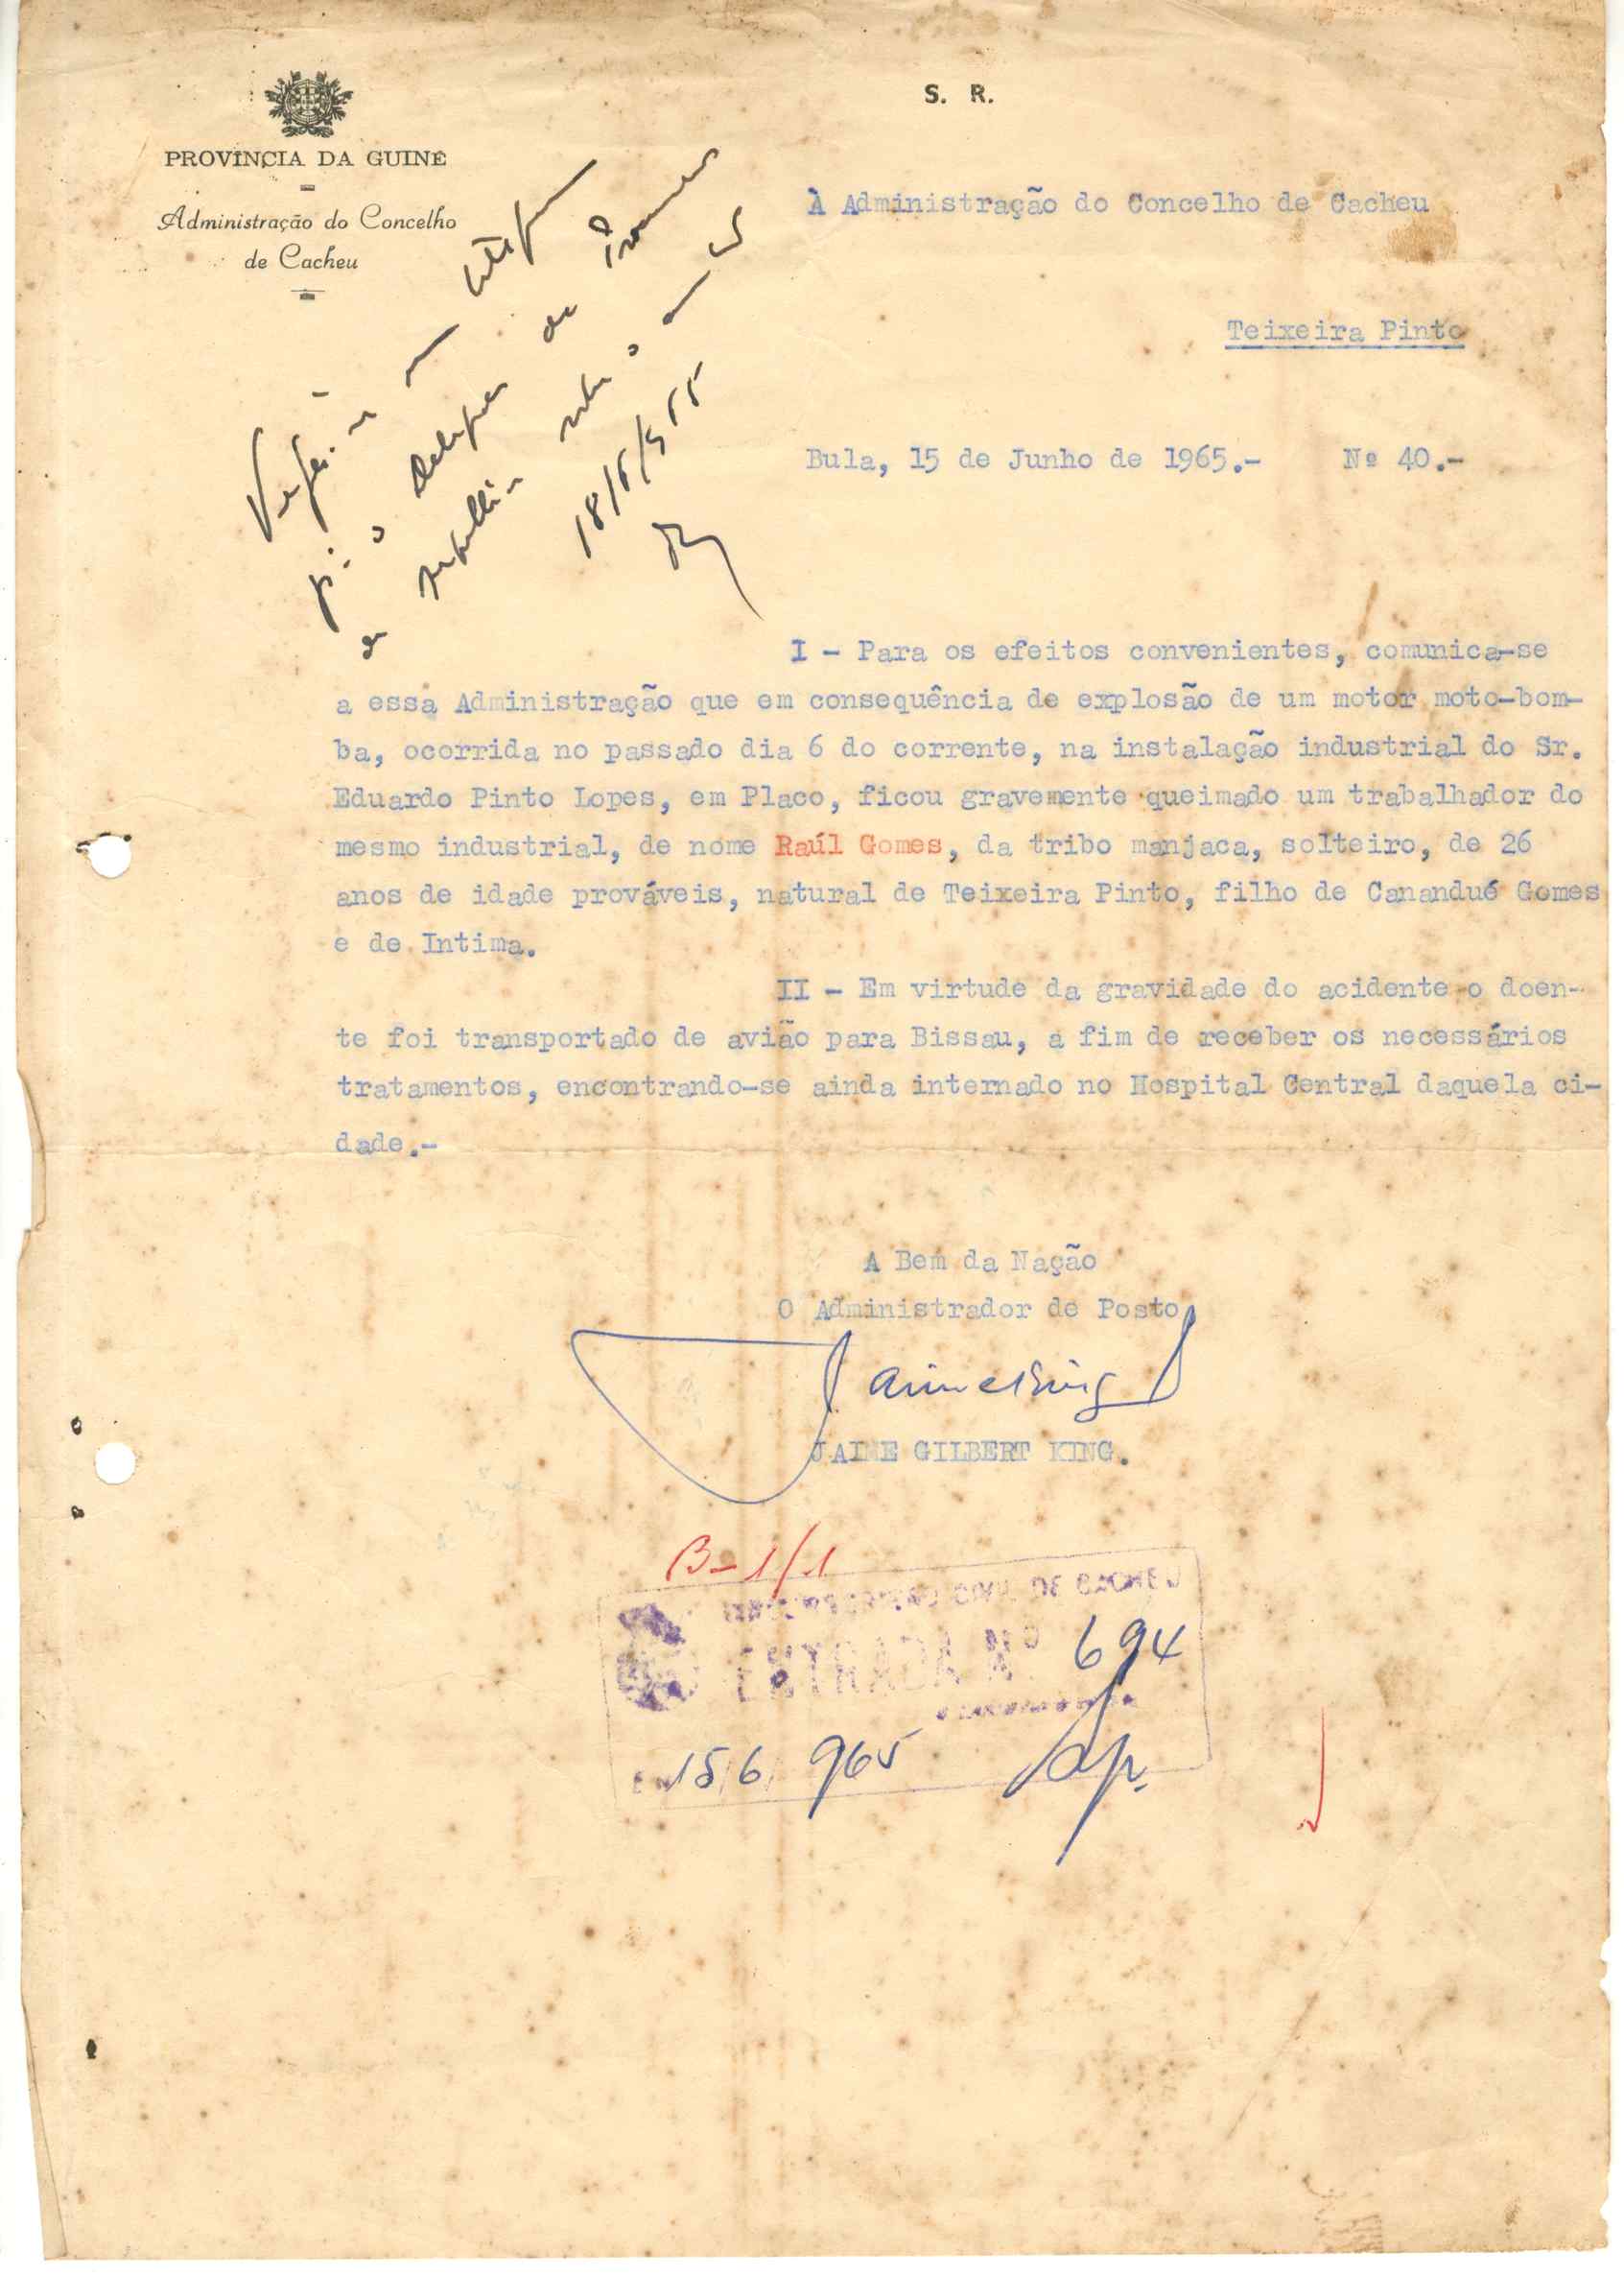 S. R.
PROVÍNCIA DA GUINÉ
Administração do Concelho
de Cacheu
À Administração do Concelho de Cacheu
Teixeira Pinto
Bula, 15 de Junho de 1965.- Nº 40.-
18/6/965
I - Para os efeitos convenientes, comunica-se
a essa Administração que em consequência de explosão de um motor moto-bom-
ba, ocorrida no passado dia 6 do corrente, na instalação industrial do Sr.
Eduardo Pinto Lopes, em Placo, ficou gravemente queimado um trabalhador do
mesmo industrial, de nome Raúl Gomes, da tribo manjaca, solteiro, de 26
anos de idade prováveis, natural de Teixeira Pinto, filho de Canandué Gomes
e de Intima.
II - Em virtude da gravidade do acidente o doen-
te foi transportado de avião para Bissau, a fim de receber os necessários
tratamentos, encontrando-se ainda internado no Hospital Central daquela ci-
dade.-
A Bem da Nação
O Administrador de Posto,
Jaime King
JAIME GILBERT KING.
B-1/1
CIVIL DE CACHEU
ENTRADA Nº 694
15/6/965